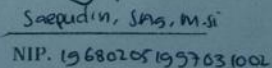 Saepudin, SAg, M.Si
NIP. 196802051997031002